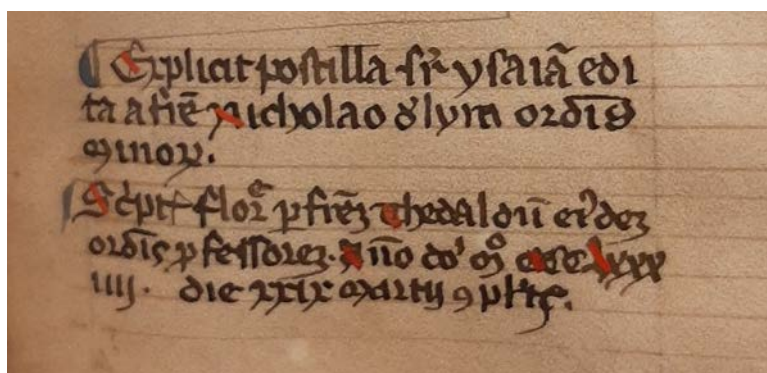 ¶ Explicit postilla sr̄ ysaiā edi
ta a frē Nicholao d lyra ordīs
minoꝝ.
¶ Sc̄pt flor̄ ꝑ frēꝫ Thedaldū eiꝰdeꝫ
ordīs ꝓfessoreꝫ. Anno do' mͦ ccc lxxx
iiij. die xxix martij ꝯplt.